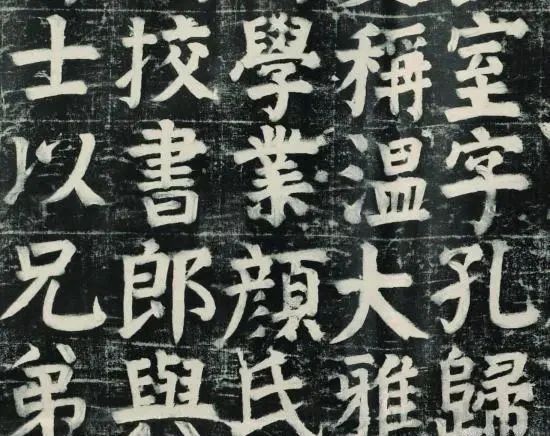 室字孔歸
稱温大雅
學業顔氏
挍書郎與
士以兄弟